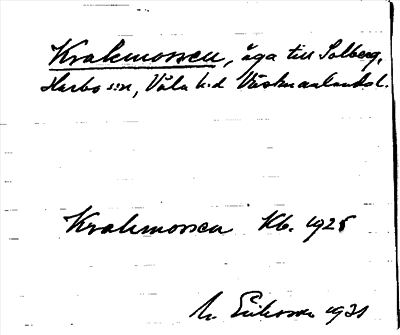 Krakmossen, äga till Solberg,
Harbo sn, Våla hd Västmanlands l.
Krakmossen Kb. 1928
Eriksson 1931